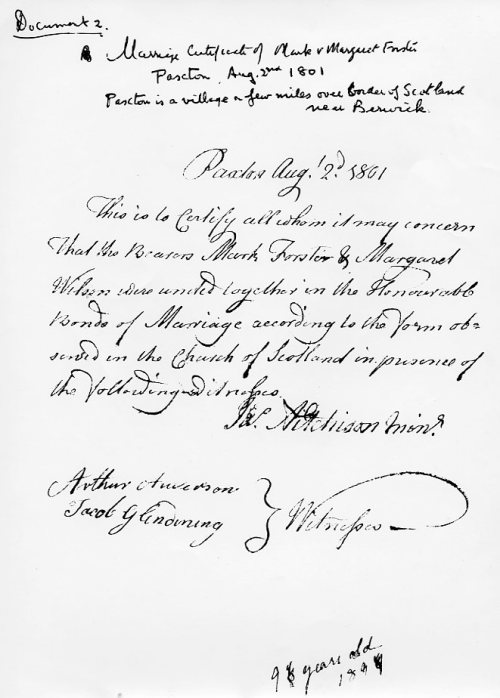 Document 2.
Marriage Certificate of Mark & Margaret Forster
Paxton Aug. 2nd 1801
Paxton is a village a few miles over Border of Scotland
near Berwick.
Paxton Aug.t 2.d 1801
This is to Certify all whom it may concern
That the Bearers Mark Forster & Margaret
Wilson were united together in the Honourable
Bonds of Marriage according to the form ob=
served in the Church of Scotland in presence of
the following witnesses
Jas. Aitchison Minr.
Arthur Anderson
Jacob Glendining } Witnesses
years old